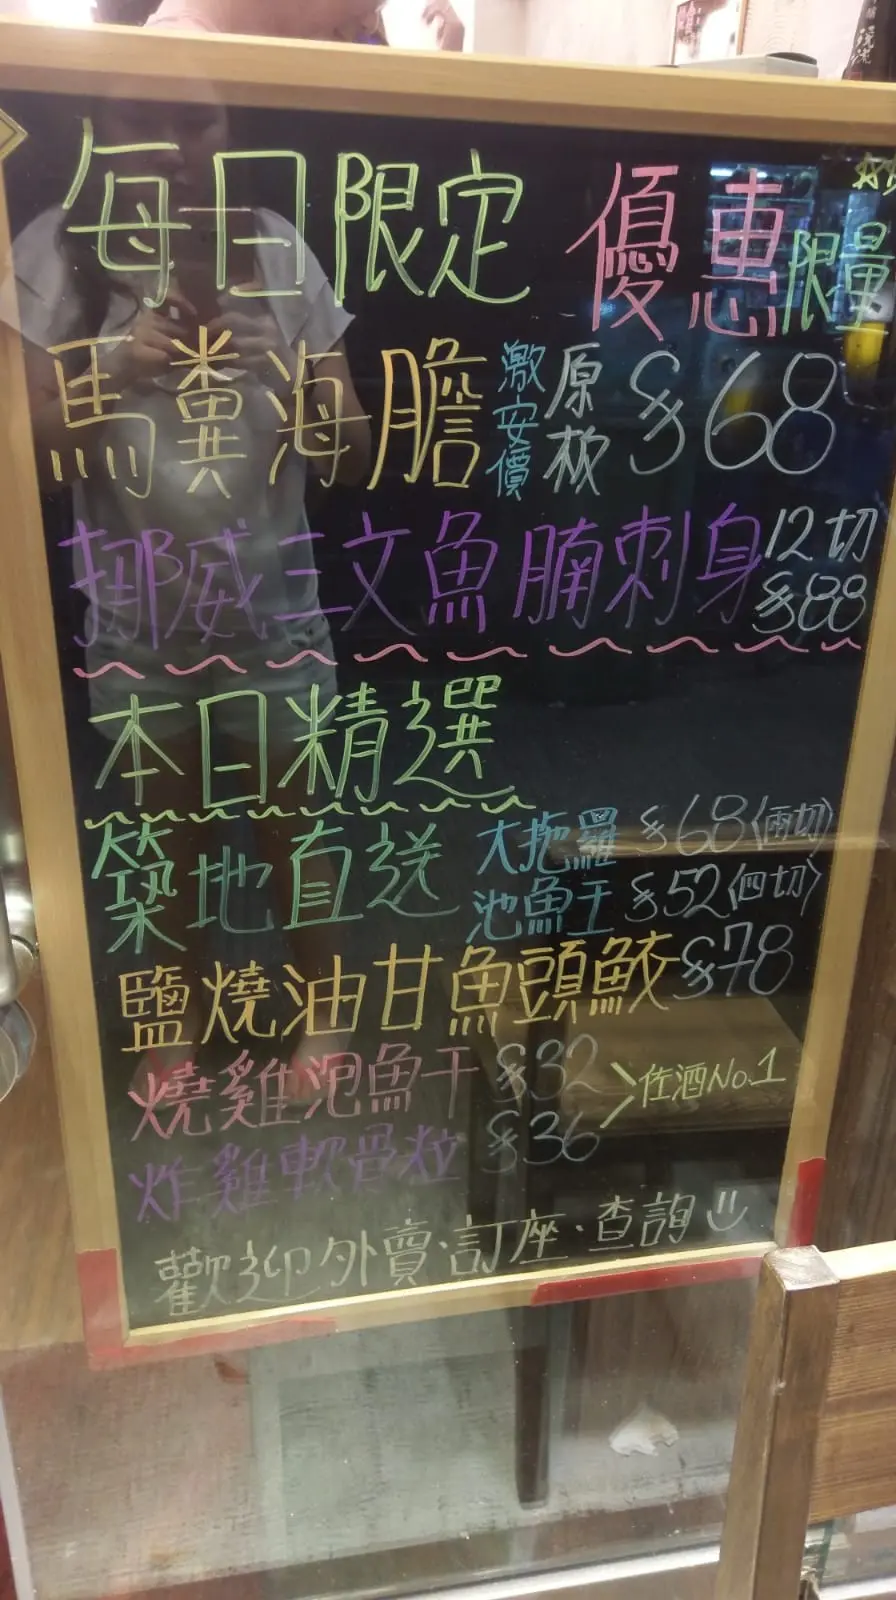 每日限定 優惠 限量
馬糞海膽 激安價 原板 $68
挪威三文魚腩刺身 12切 $88
本日精選
築地直送 大拖羅 $68(兩切)
池魚王 $52(四切)
鹽燒油甘魚頭鮫 $78
燒雞泡魚干 $32
佐酒No.1
炸雞軟骨粒 $36
歡迎外賣·訂座·查詢